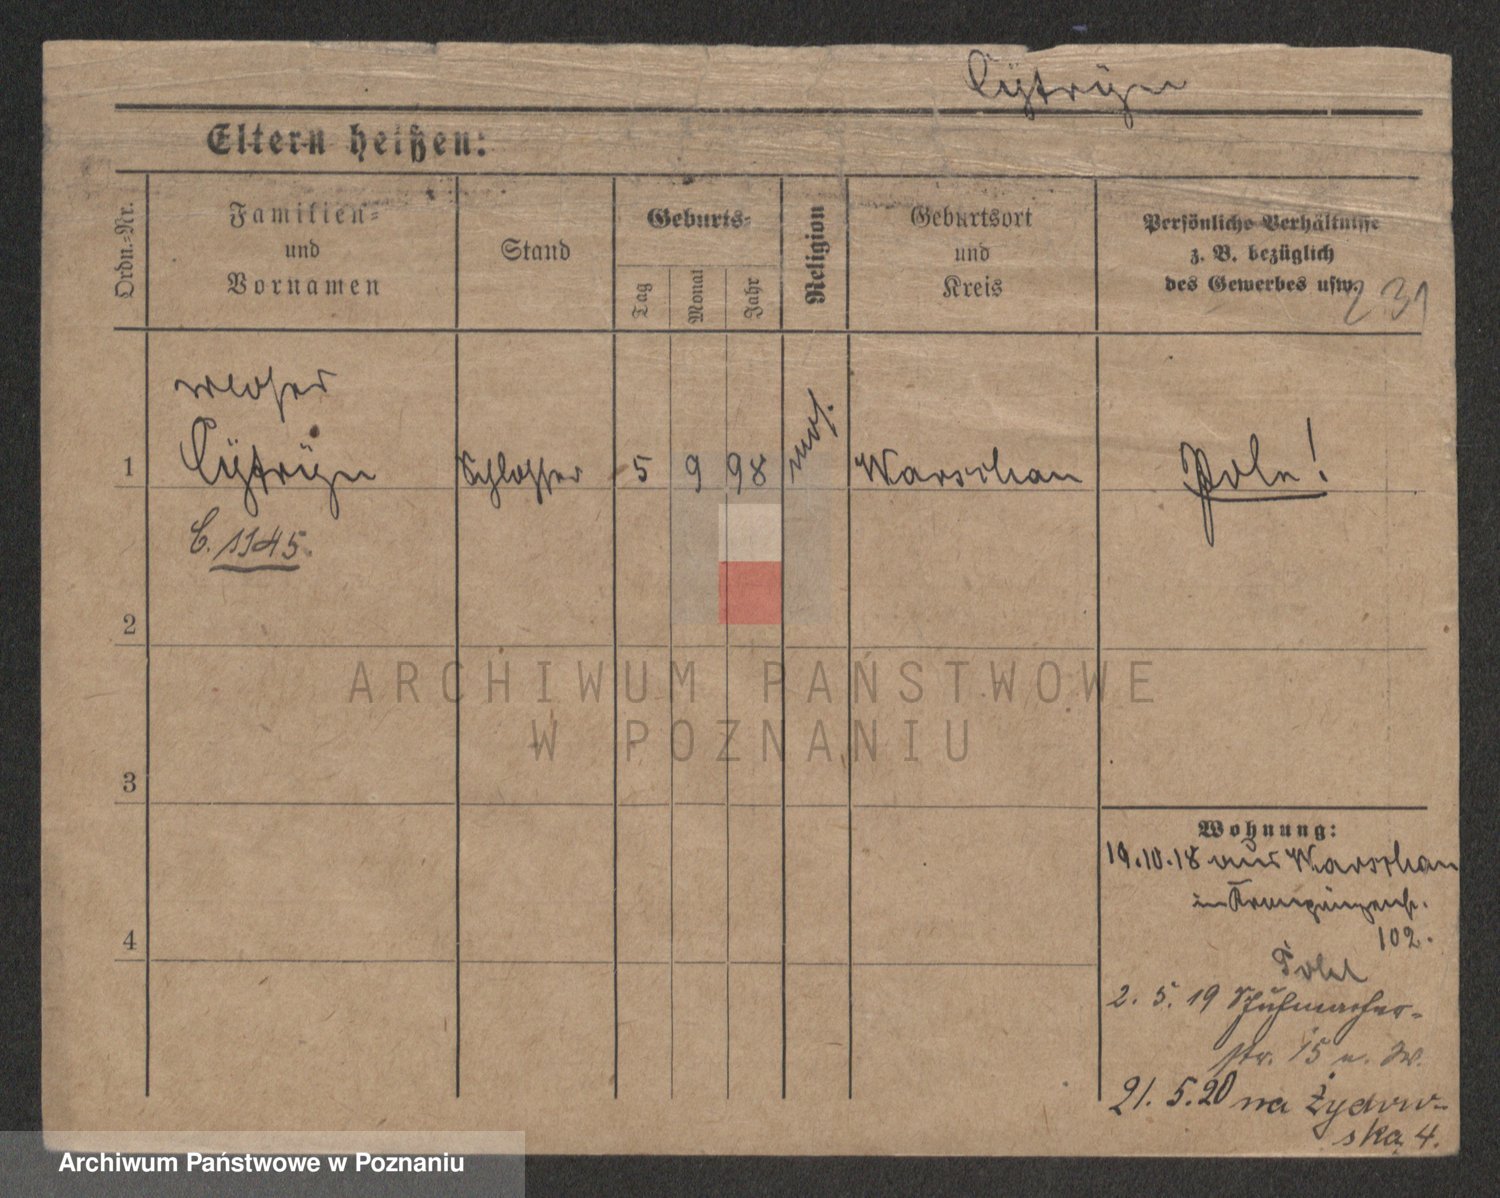 Cÿtrÿn
Eltern heißen:
Ordn.=Nr.
Familien=
und
Vornamen
Stand
Geburts=
Tag
Monat
Jahr
Religion
Geburtsort
und
Kreis
Persönliche Verhältnisse
z. B. bezüglich
des Gewerbes usw.
231
1
Cÿtrÿn
Schlosser
5
9
98
mos.
Warschau
Pole!
C. 1145.
2
3
4
Wohnung:
19.10.18 aus Warschau
in Kronprinzenstr.
102.
2. 5. 19 Schuhmacher-
str. 15
21. 5. 20 na Żydow-
ska 4.
ARCHIWUM PAŃSTWOWE
W POZNANIU
Archiwum Państwowe w Poznaniu